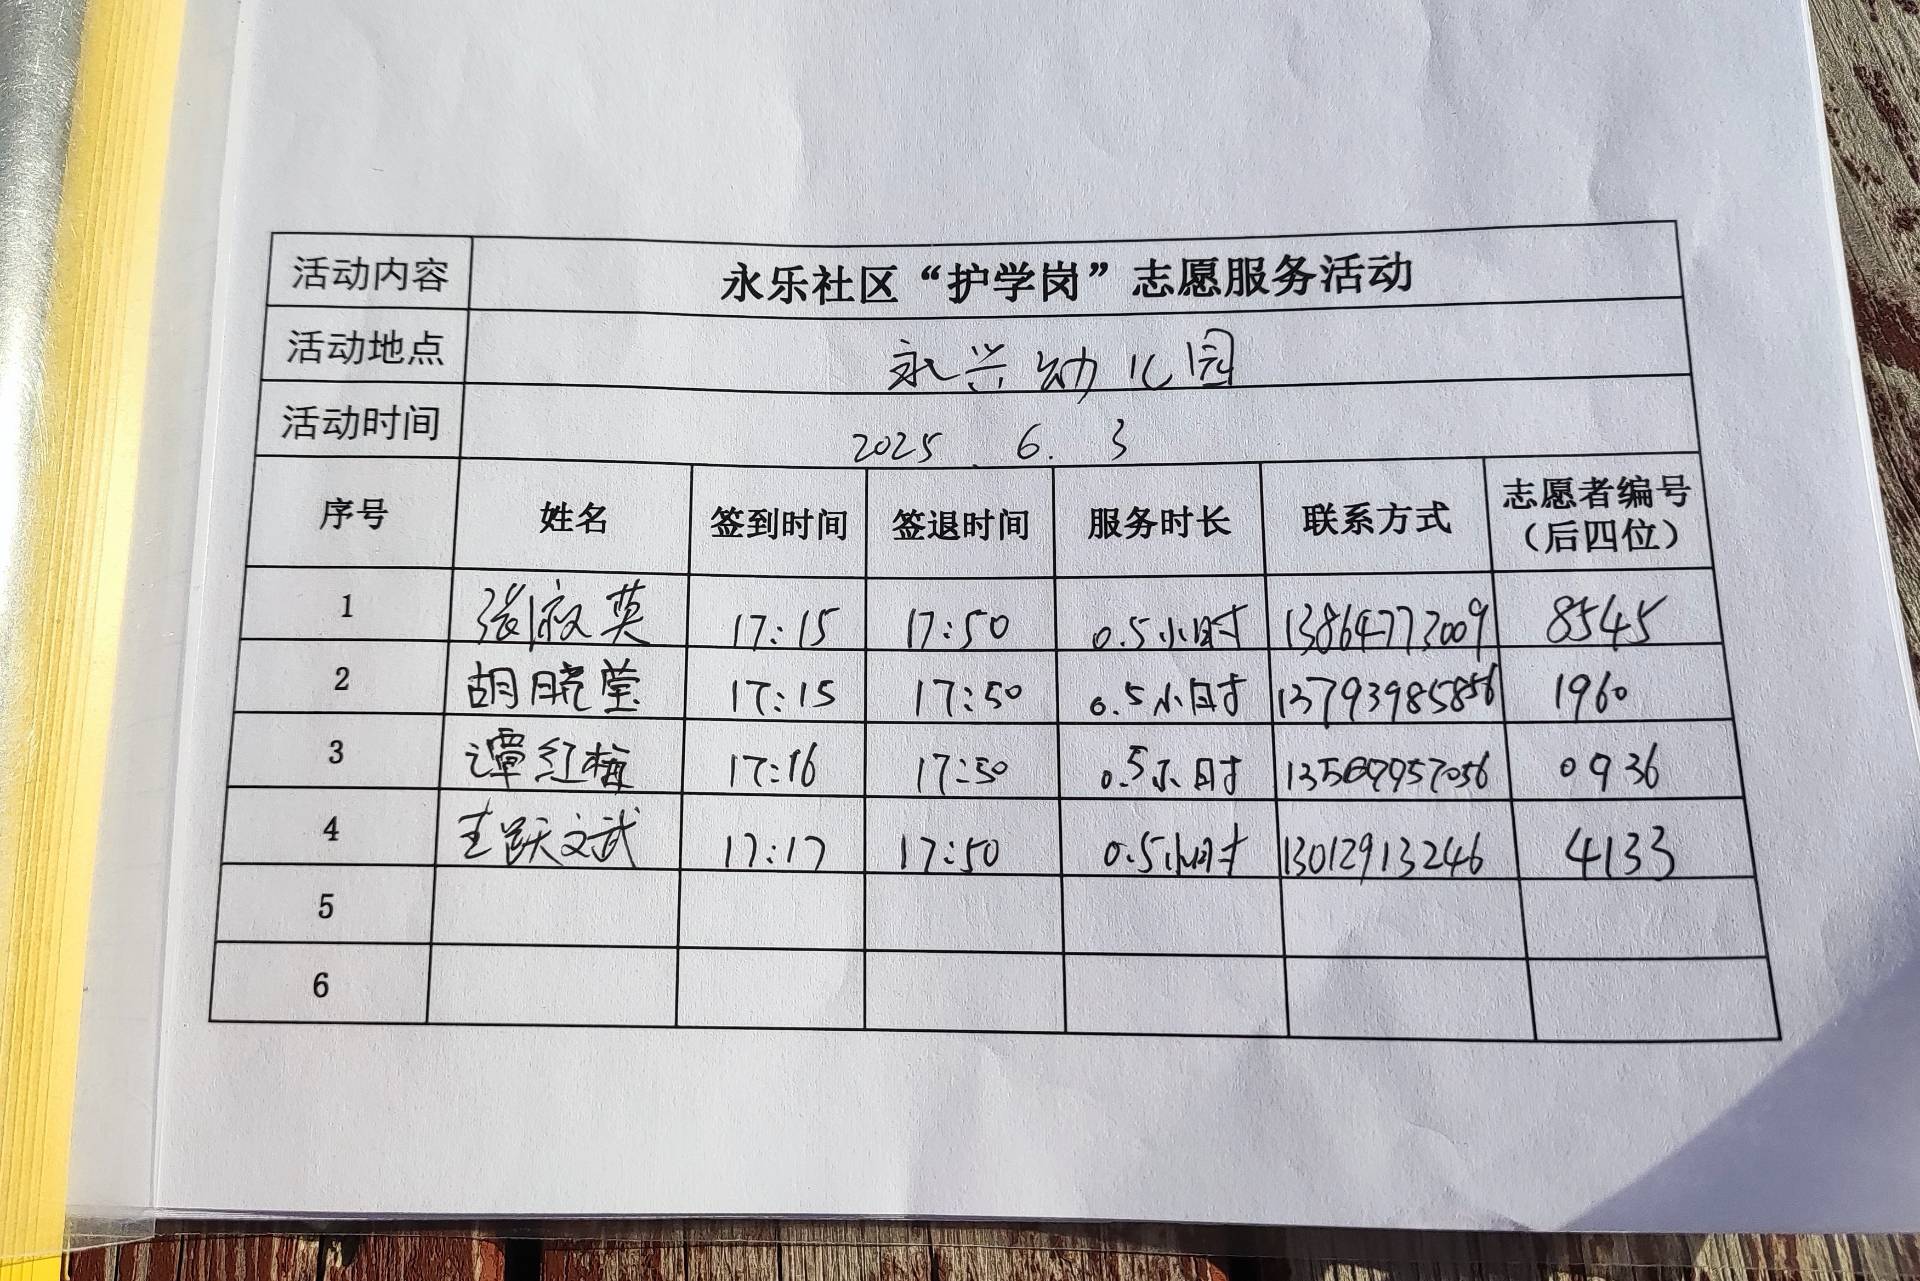 活动内容 永乐社区“护学岗”志愿服务活动
活动地点 永兴幼儿园
活动时间 2025.6.3
序号 姓名 签到时间 签退时间 服务时长 联系方式 志愿者编号（后四位）
1 张淑英 17:15 17:50 0.5小时 13864773009 8545
2 胡晓莹 17:15 17:50 0.5小时 13793985856 1960
3 谭红梅 17:16 17:50 0.5小时 0936
4 文武 17:17 17:50 0.5小时 13012913246 4133
5
6